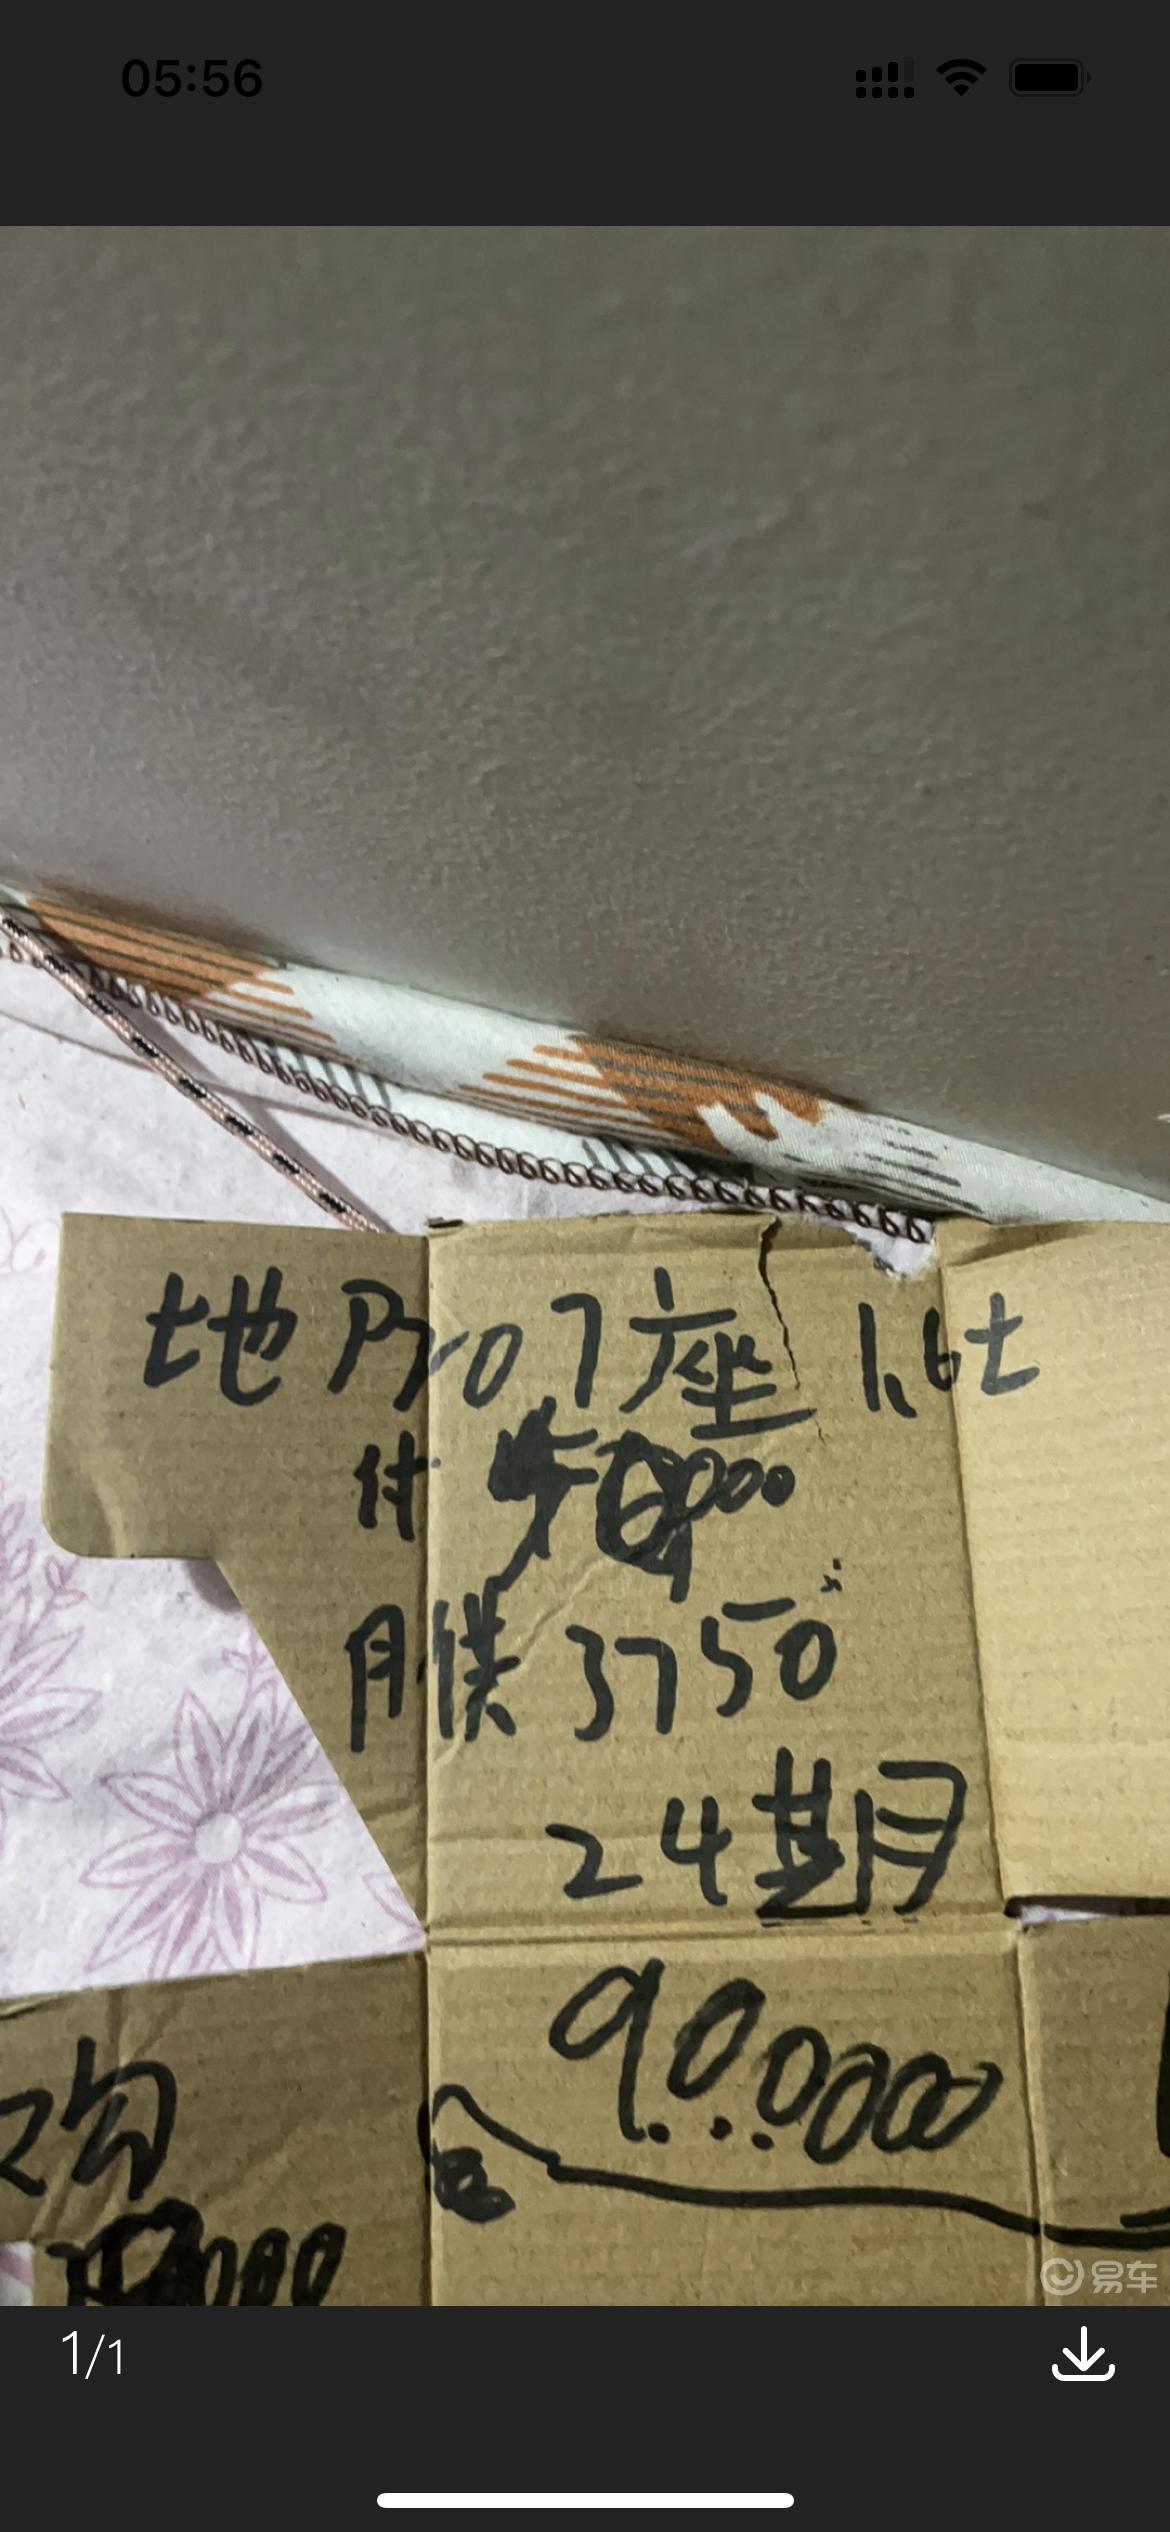 05:56
地Pro 7座 1.6t
付
月供 3750
24期
900000
易车
1/1